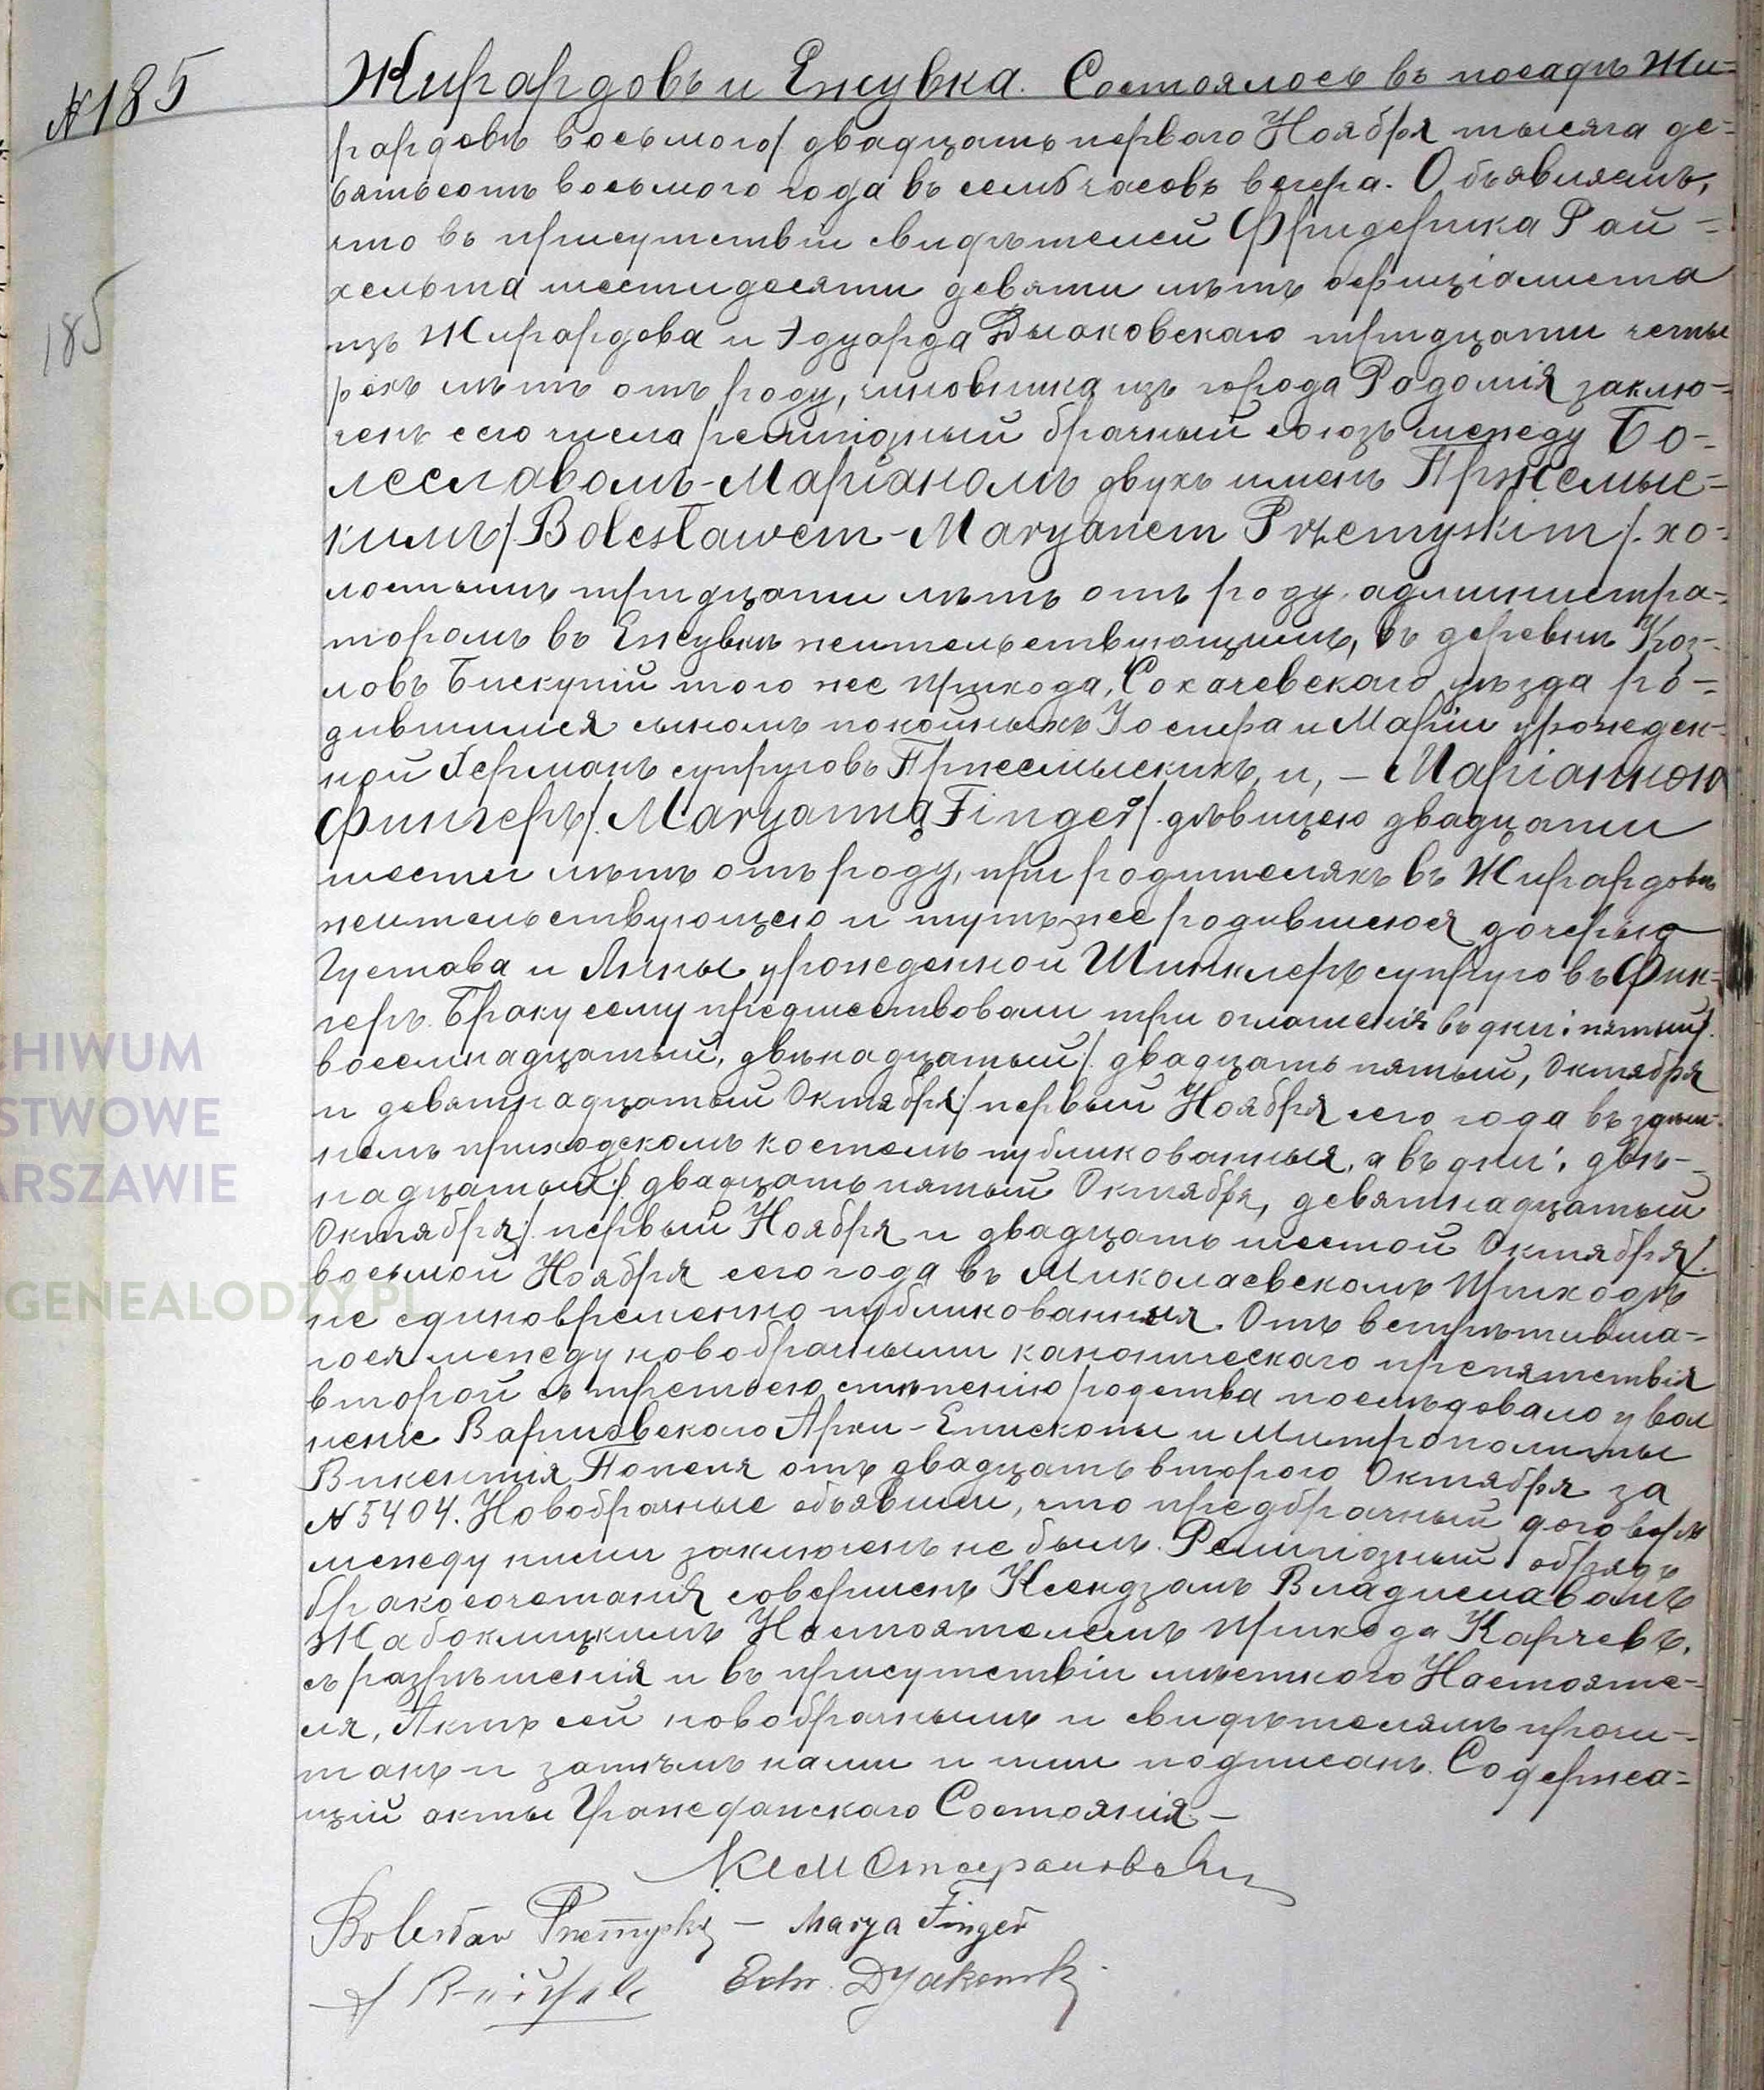 № 185
Жирардовъ и Ежувка. Состоялось въ посадѣ Жи-
рардовѣ восьмого/ двадцать перваго Ноября тысяча де-
вятьсотъ восьмого года въ семь часовъ вечера. Объявляемъ,
что въ присутствіи свидѣтелей Фридерика Рай-
хельта шестидесяти девяти лѣтъ официалиста
изъ Жирардова и Эдуарда Дыаковскаго тридцати четы
рехъ лѣтъ отъ роду, чиновника изъ города Радомія заклю-
ченъ сего числа религіозный брачный союзъ между Бо-
леславомъ-Маріаномъ двухъ именъ Пржемыс-
кимъ/ Bolesławem-Maryanem Przemyskim/. хо-
лостымъ тридцати лѣтъ отъ роду, администра-
торомъ въ Ежувкѣ жительствующимъ, въ деревнѣ Коз-
ловъ Бискупій того же прихода, Сохачевскаго уѣзда ро-
дившимся сыномъ покойныхъ Іосифа и Маріи урожден-
ной Германъ супруговъ Пржемыскихъ, и, – Маріанною
Фингеръ/. Maryanną Finger/. дѣвицею двадцати
шести лѣтъ отъ роду, при родителяхъ въ Жирардовѣ
жительствующею и тутъ же родившеюся дочерью
Густава и Анны урожденной Шинклеръ супруговъ Фин-
геръ. Браку сему предшествовали три оглашенія въ дни: пятый/.
восемнадцатый, двѣнадцатый/. двадцать пятый, Октября
и девятнадцатый Октября/ первый Ноября сего года въ здѣш-
немъ приходскомъ костелѣ публикованныя, а въ дни: двѣ-
надцатый/. двадцать пятый Октября, девятнадцатый
Октября/. первый Ноября и двадцать шестой Октября/.
восьмой Ноября сего года въ Миколаевскомъ приходѣ
не единовременно публикованныя. Отъ встрѣтивша-
гося между новобрачными каноническаго препятствія
второй съ третьею степенью родства послѣдовало увол
неніе Варшавскаго Архи-Епископы и Митрополиты
Викентія Попеля отъ двадцать второго Октября за
№ 5404. Новобрачные объявили, что предбрачный договоръ
между ними заключенъ не былъ. Религіозный обрядъ
бракосочетанія совершенъ Ксендзомъ Владиславомъ
Жабоклицкимъ Настоятелемъ прихода Карчевъ,
съ разрѣшенія и въ присутствіи мѣстного Настояте-
ля, Актъ сей новобрачнымъ и свидѣтелямъ прочи-
танъ и затѣмъ нами и ими подписанъ. Содержа-
щій акты Гражданскаго Состоянія. –
Bolesław Przemyski – Marya Finger
Edw. Dyakowski
185
ARCHIWUM
GENEALODZY.PL